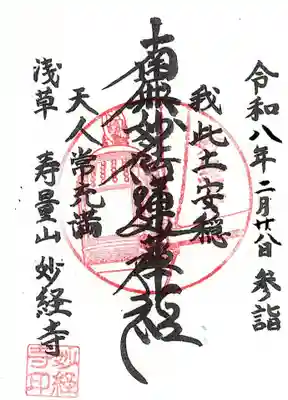 令和八年二月廿八日参詣
我此土安穏
南無妙法蓮華経
天人常充満
浅草 寿量山 妙経寺
妙経寺印